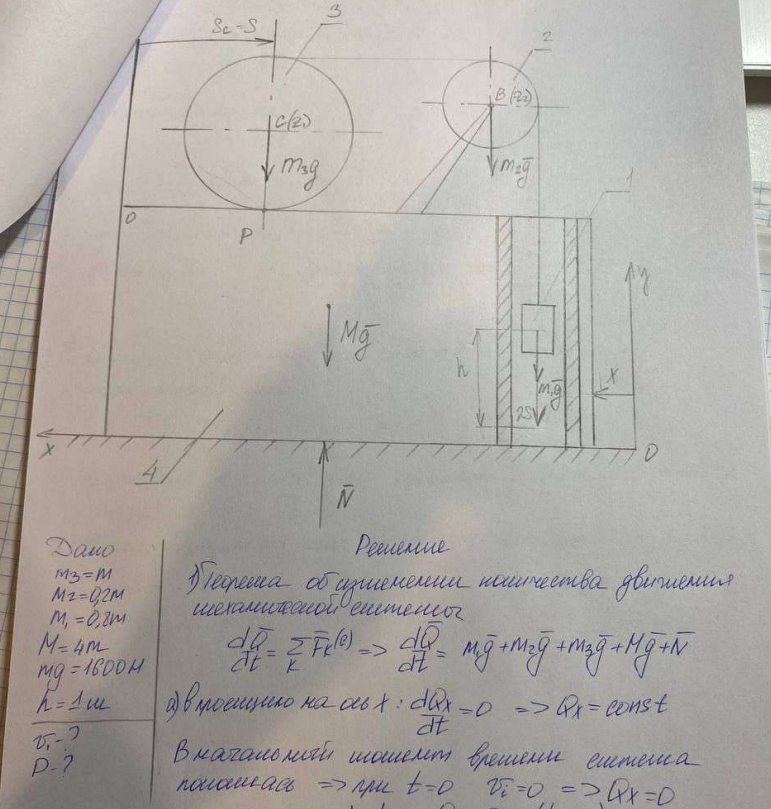 Sc=S
3
2
C(z)
m₃g
B(z₂)
m₂g̅
1
O
P
Mg̅
h
m₁g̅
2S
y
X
X
4
N̅
O
Дано
m₃=m
m₂=0,2m
m₁=0,8m
M=4m
mg=1600Н
h=1м
v₁-?
P-?
Решение
1) Теорема об изменении количества движения
механической системы
dQ̅/dt = Σ F̅ₖ⁽ᵉ⁾ => dQ̅/dt = m₁g̅+m₂g̅+m₃g̅+Mg̅+N̅
а) в проекцию на ось X: dQx/dt =0 => Qx=const
В начальный момент времени система
покоилась => при t=0 v̅ᵢ=0 => Qx=0